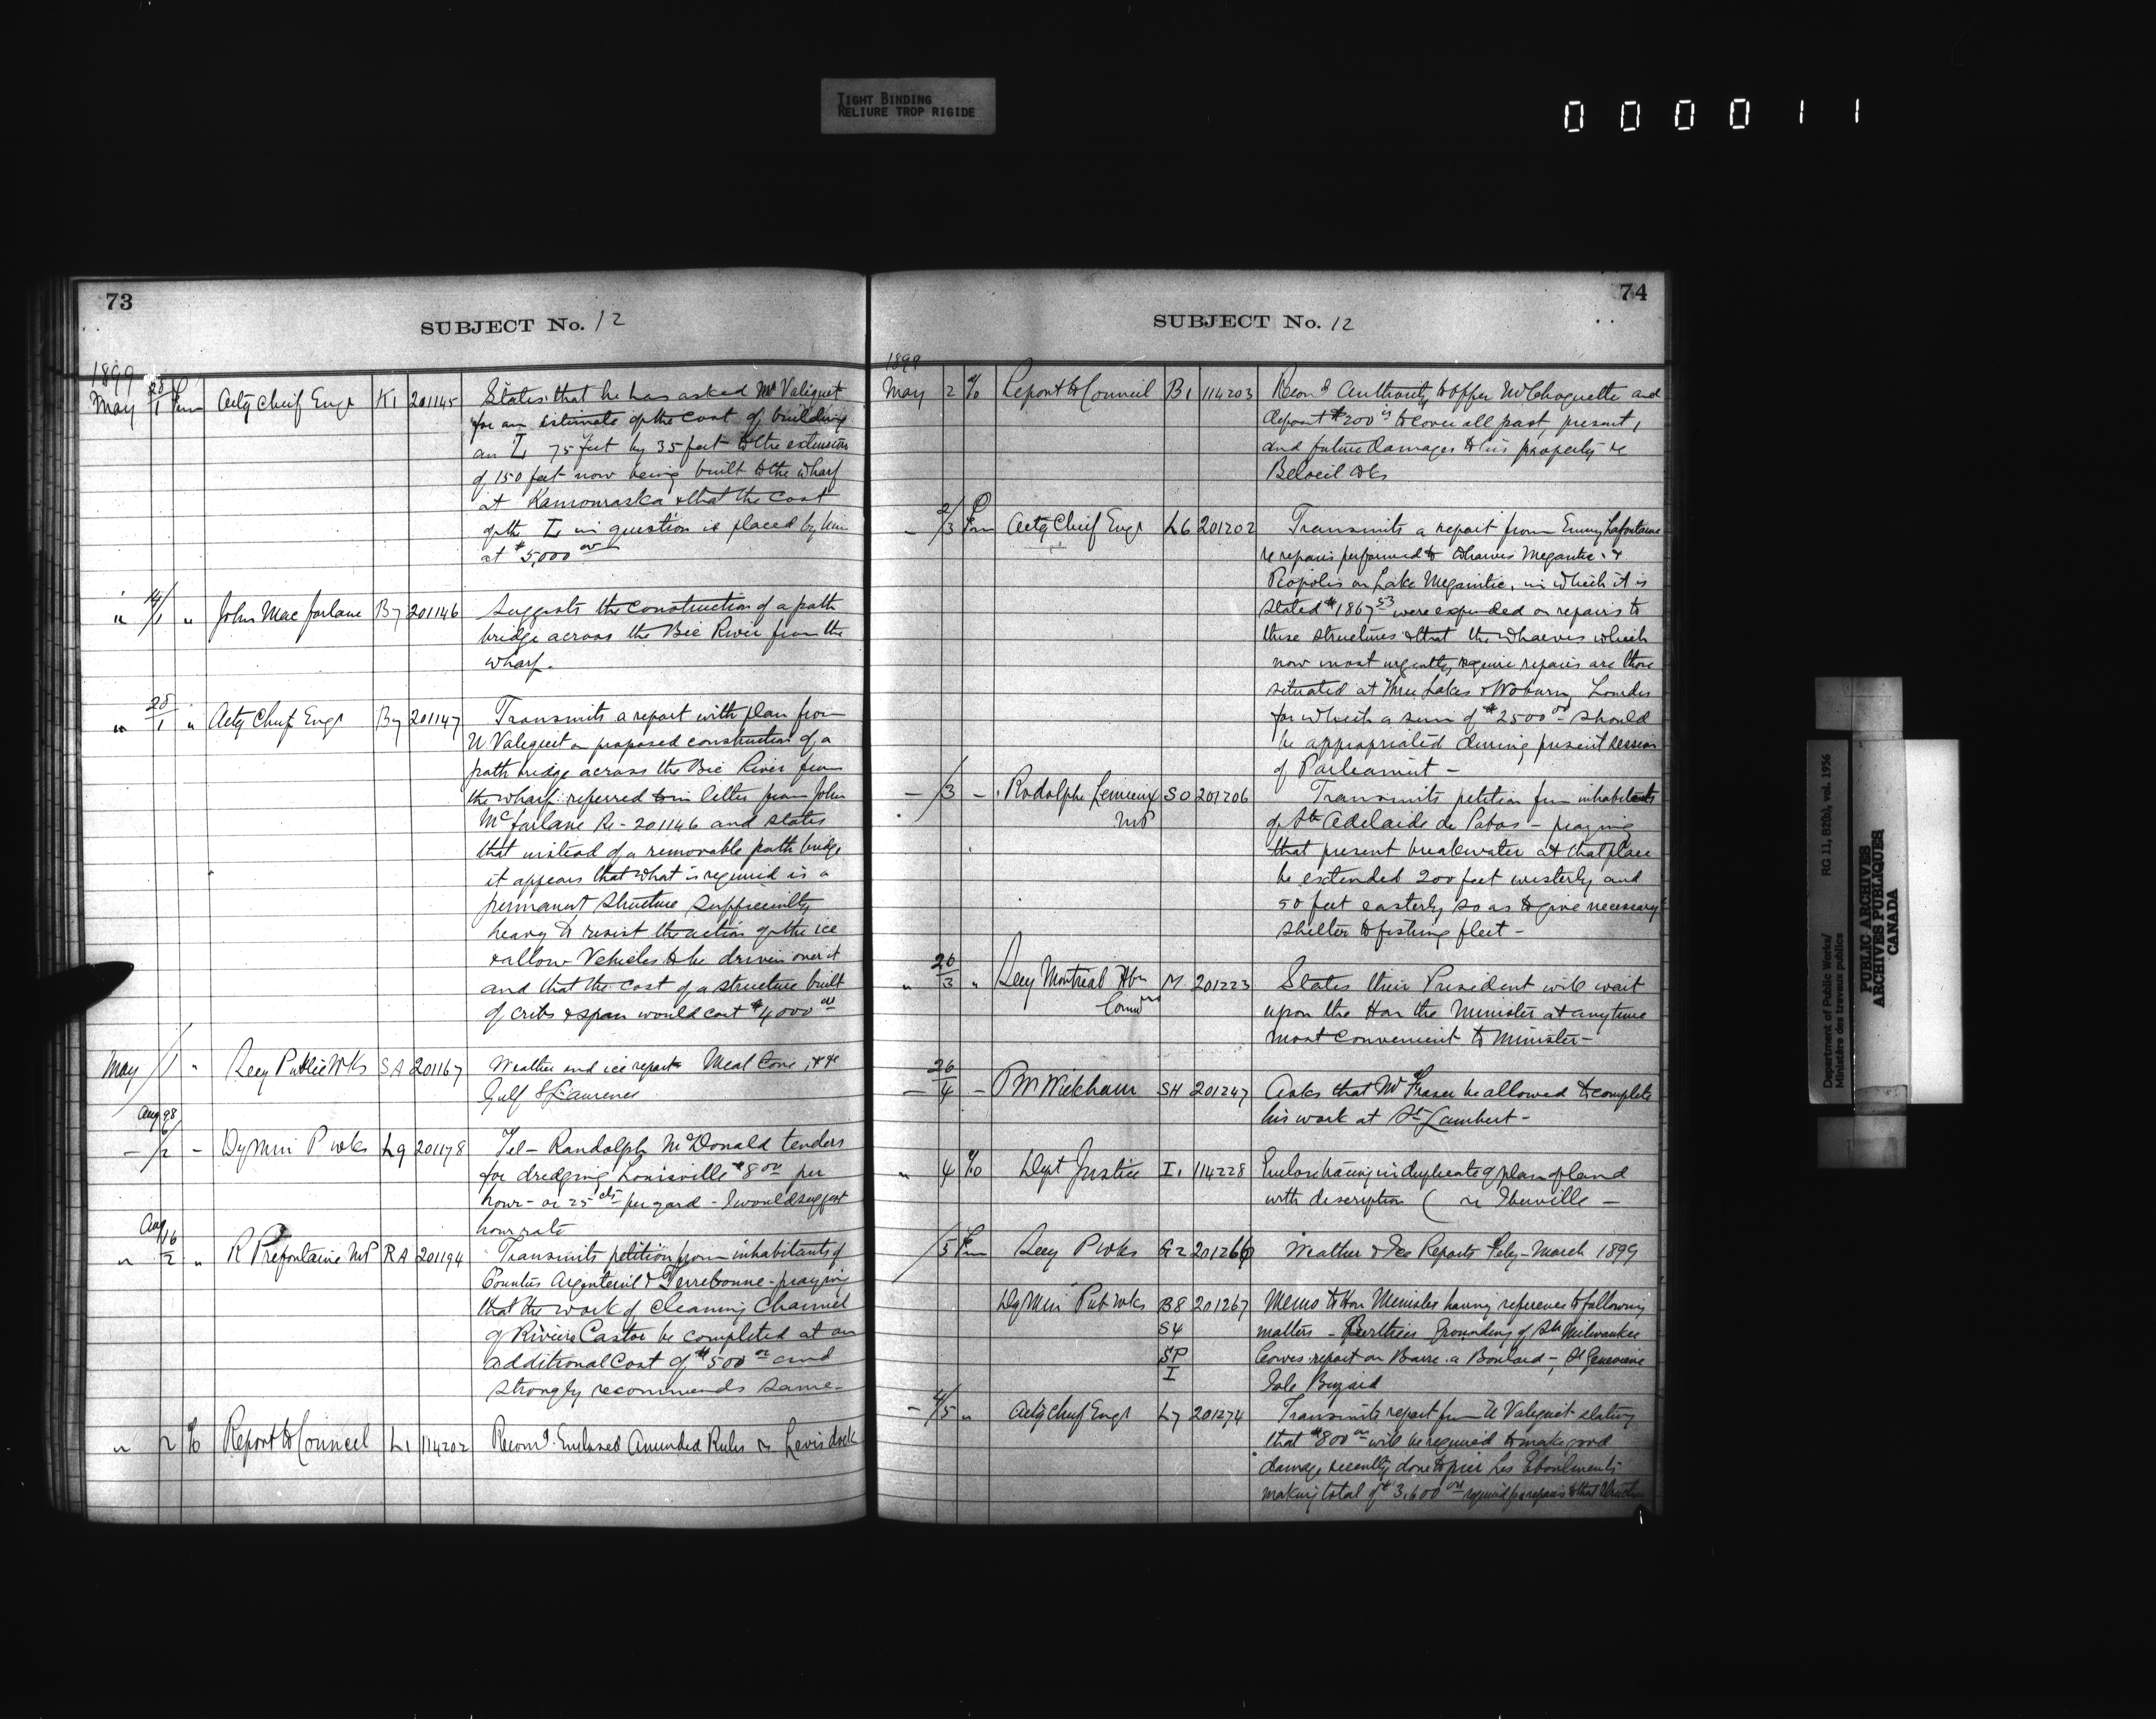 TIGHT BINDING
RELIURE TROP RIGIDE
000011
73
SUBJECT No. 12
1899
May 28/1 Acty Chief Engr K1 201145 States that he has asked Mr Valiquet
for an estimate of the cost of building
an L 75 feet by 35 feet to the extension
of 150 feet now being built to the wharf
at Kamouraska & that the cost
of the L in question is placed by him
at $5,000 00
" 14/1 " John Mac farlane B7 201146 Suggests the construction of a path
bridge across the Bic River from the
wharf.
" 28/1 " Acty Chief Engr B7 201147 Transmits a report with plan from
U. Valiquet on proposed construction of a
path bridge across the Bic River from
the wharf referred to in letter from John
McFarlane Re- 201146 and states
that instead of a removable path bridge
it appears that what is required is a
permanent structure sufficiently
heavy to resist the action of the ice
& allow Vehicles to be driven over it
and that the cost of a structure built
of cribs & span would cost $4000 00
May /1 " Secy Public Wks SA 201167 Weather and ice report Meat Cove, &c
Gulf St Laurence
Aug 98
- /2 - Dy Min P wks L9 201178 Tel- Randolph McDonald tenders
for dredging Louisville $8 00 per
hour - or 25 cts per yard - I would suggest
hour rate
Aug
" 16/2 " R Prefontaine MP RA 201194 Transmits petition from inhabitants of
Counties Argenteuil & Terrebonne - praying
that the work of cleaning Channel
of Rivière Castor be completed at an
additional Cost of $500 00 and
strongly recommends same-
" 2 % Report to Council L1 114202 Recomd. Enclosed Amended Rules re Levis dock
74
SUBJECT No. 12
1899
May 2 % Report to Council B1 114203 Recomd Authority to offer Mr Choquette and
deposit $200 is to cover all past, present,
and future damages to his property re
Beloeil Wks
- 2/3 Acty Chief Engr L6 201202 Transmits a report from Emery Lafontaine
re repairs performed to Wharves Megantic &
Piopolis on Lake Megantic, in which it is
stated $1867 53 were expended on repairs to
these structures & that the Wharves which
now most urgently require repairs are those
situated at Three Lakes & Woburn, Lourdes
for which a sum of $2500 00 should
be appropriated during present session
of Parliament -
- /3 - Rodolphe Lemieux SO 201206 Transmits petition from inhabitants
MP of Ste Adelaide de Pabos - praying
that present breakwater at that place
be extended 200 feet westerly and
50 feet easterly so as to give necessary
shelter to fishing fleet -
" 26/3 " Secy Montreal Hbr M 201223 States their President will wait
Commrs upon the Hon the Minister at anytime
most convenient to Minister -
- 26/4 - P M Wickham SH 201247 Asks that Mr Fraser be allowed to complete
his work at St Lambert -
" 4 % Dept Justice I1 114228 Enclose tracing in duplicate of plan of land
with description ( re Iberville -
/5 Secy P wks G2 201266 Weather & Ice Reports Feby - March 1899
Dy Min Pub Wks B8 201267 Memo to Hon Minister having reference to following
S4 matters - Berthier Grounding of SS Milwaukee
SP Cowies report on Barre a Boulard - St Genevieve
I Isle Bizard
- 4/5 " Acty Chief Engr L7 201274 Transmits report from U Valiquet stating
that $800 00 will be required to make good
damage recently done to pier Les Eboulements
making total of $3,600 00 required for repairs to that structure
Department of Public Works/
Ministère des travaux publics
RG 11, B2(b), vol. 1956
PUBLIC ARCHIVES
ARCHIVES PUBLIQUES
CANADA